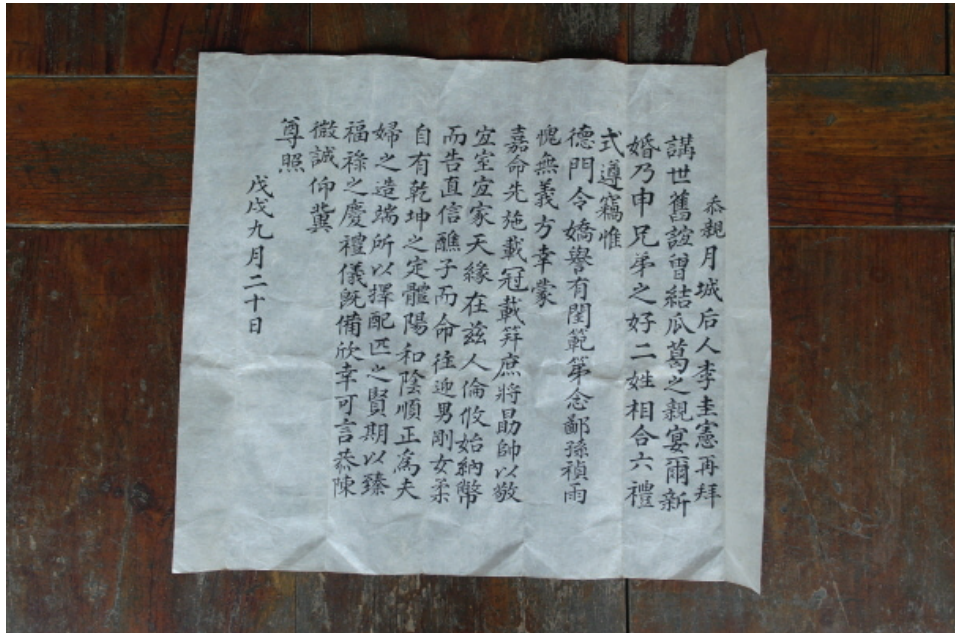 忝親月城后人李圭憲再拜
講世舊誼曾結瓜葛之親宴爾新
婚乃申兄弟之好二姓相合六禮
式遵竊惟
德門令嬌譽有閨範第念鄙孫禎雨
愧無義方幸蒙
嘉命先施載冠載笄庶將勗帥以敬
宜室宜家天緣在玆人倫攸始納幣
而告直信醮子而命往迎男剛女柔
自有乾坤之定體陽和陰順正為夫
婦之造端所以擇配匹之賢期以臻
福祿之慶禮儀旣備欣幸可言恭陳
微誠仰冀
尊照
戊戌九月二十日